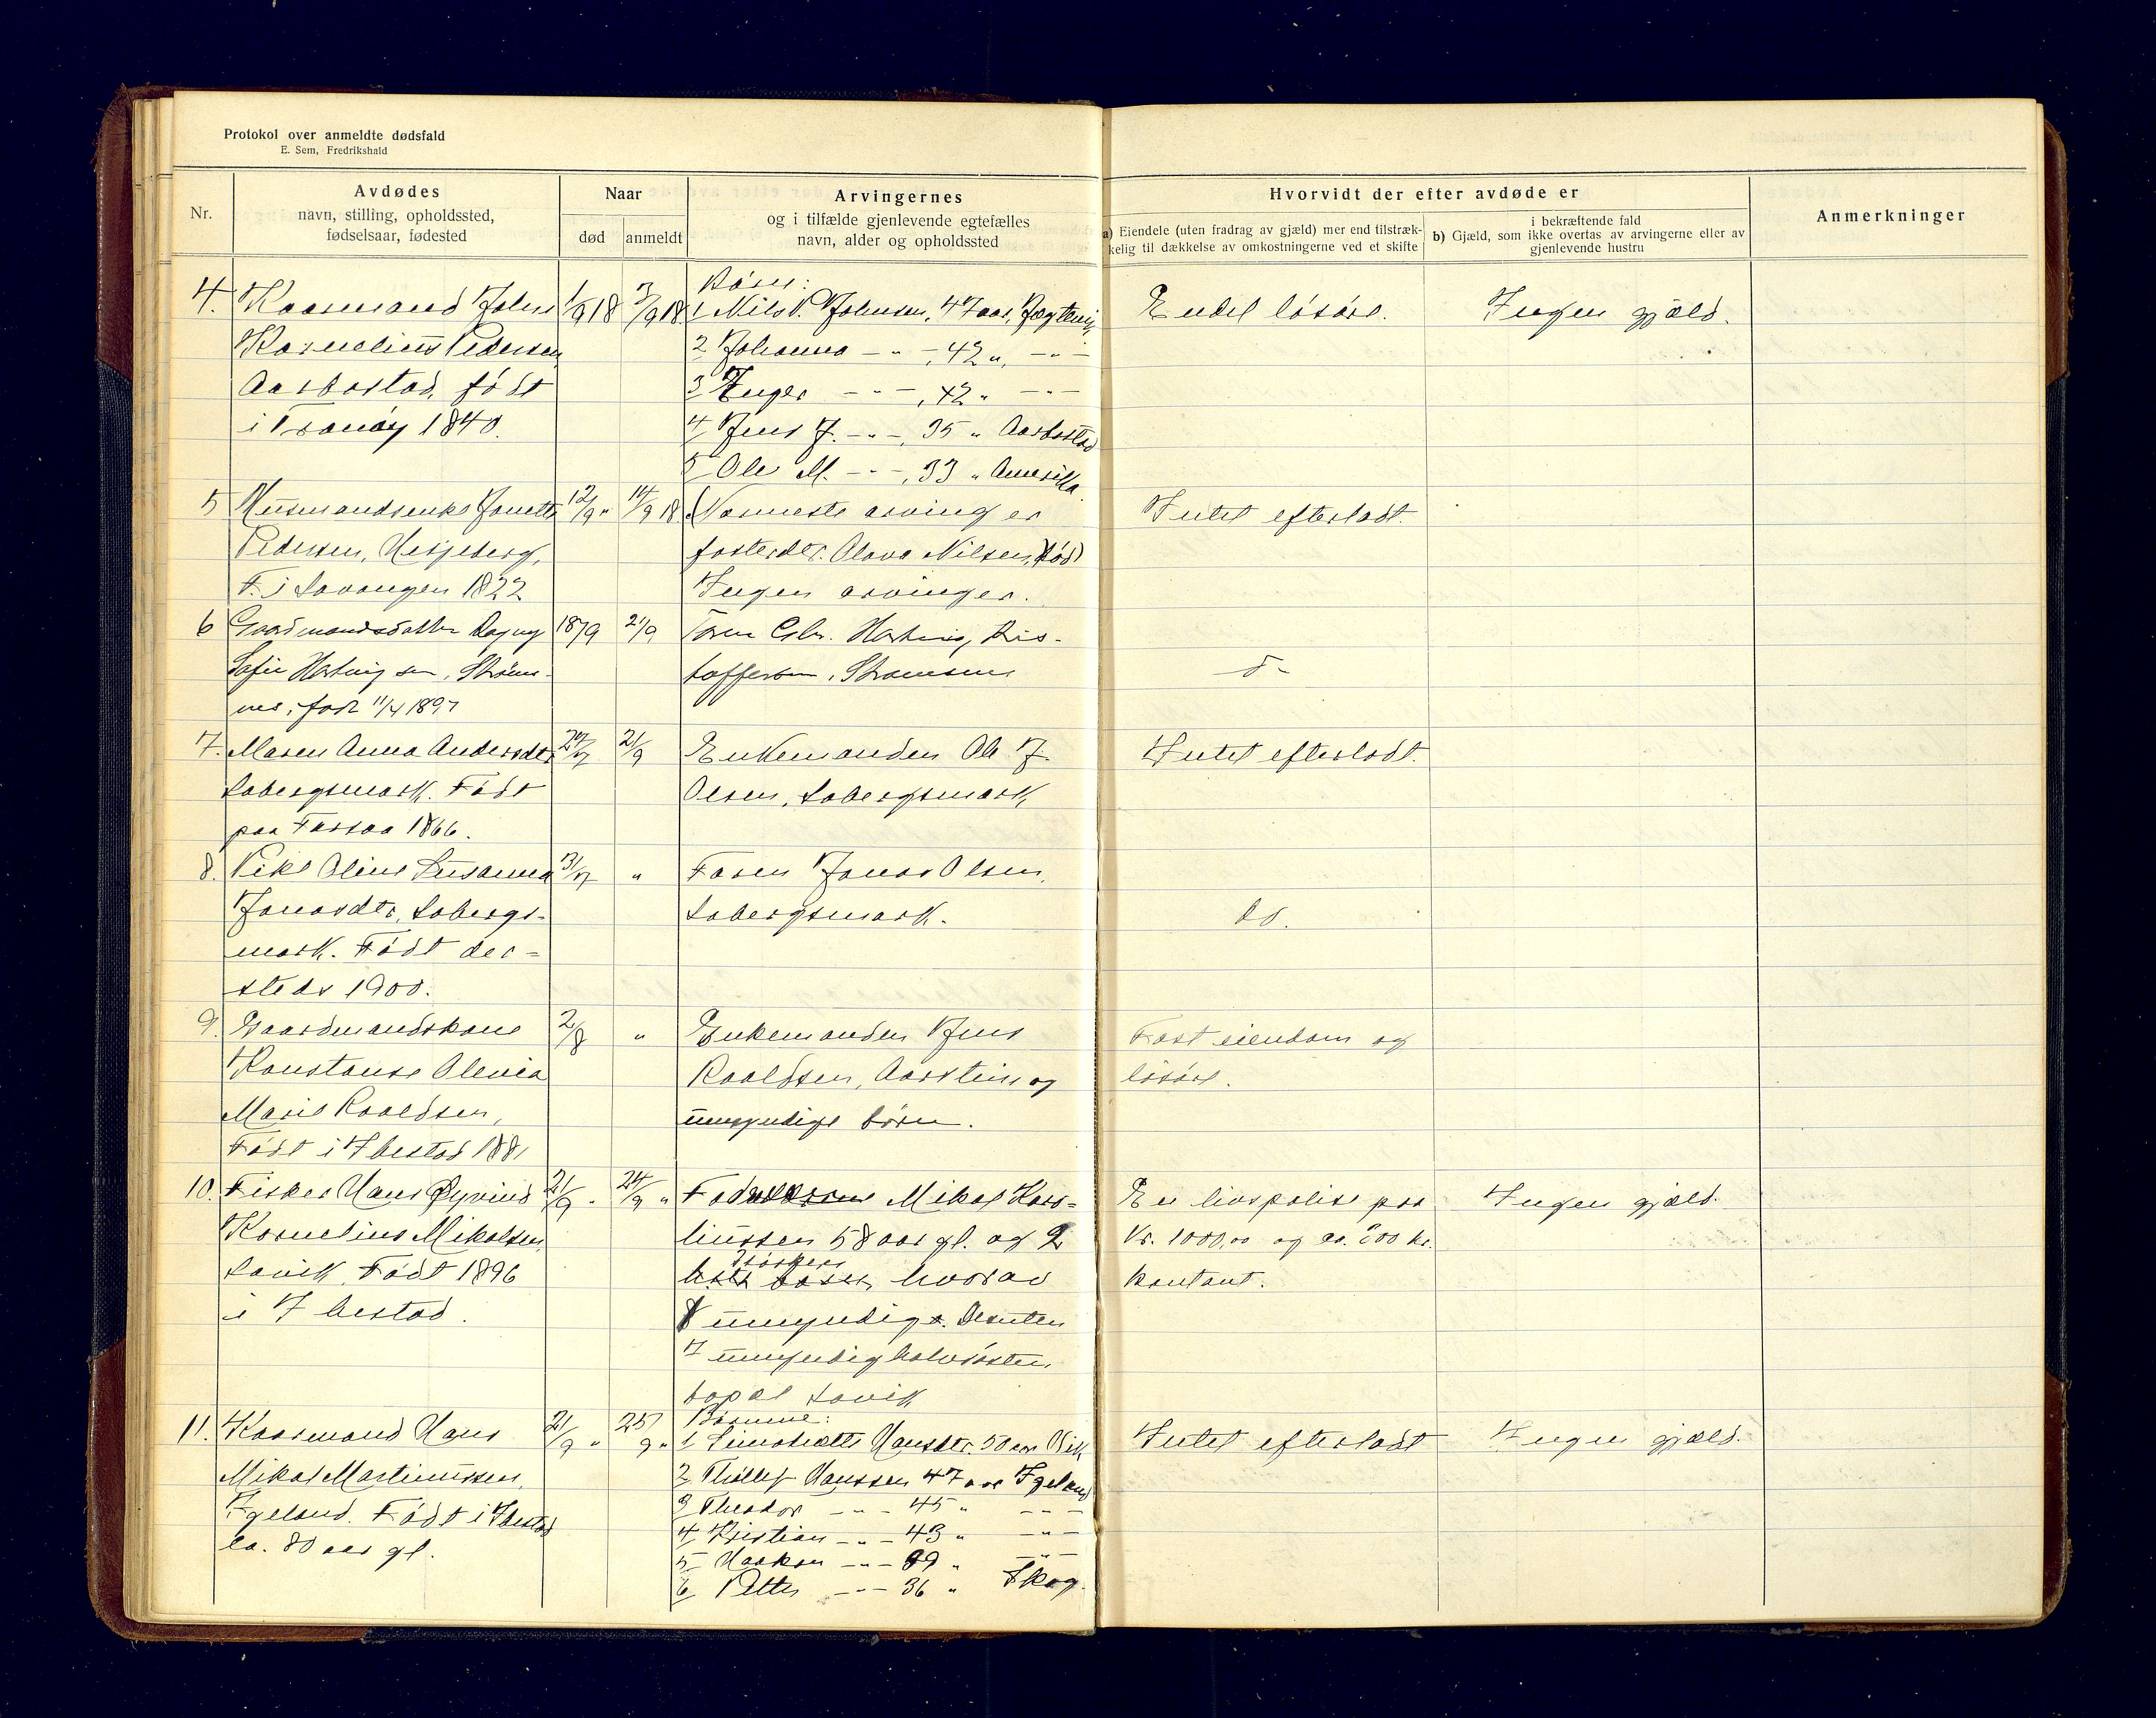 Protokol over anmeldte dødsfald
E. Sem, Fredrikshald
Nr.
Avdødes
navn, stilling, opholdssted,
fødselsaar, fødested
Naar
død
anmeldt
Arvingernes
og i tilfælde gjenlevende egtefælles
navn, alder og opholdssted
Hvorvidt der efter avdøde er
a) Eiendele (uten fradrag av gjæld) mer end tilstræk-
kelig til dækkelse av omkostningerne ved et skifte
i bekræftende fald
b) Gjæld, som ikke overtas av arvingerne eller av
gjenlevende hustru
Anmerkninger
4. Kaarmand Johan
Kornelius Pedersen
Aarbostad, født
i Tranøy 1840.
1/9 18
3/9 18
Børn:
1 Nils P. Johnsen, 47 aar,
2 Johanna -"-, 42 ", -"-
3 Inger -"-, 42 " -"-
4 Jens J. -"-, 35 " Aarbostad
5 Ole M. -"-, 33 " Amerika.
Endel løsøre.
Ingen gjæld.
5 Husmandsenke Jonette
Pedersen, Hesjeberg,
F. i Lavangen 1822
12/9 "
14/9 18
(Nærmeste arving er
fosterdtr. Olava Nilsen, død)
Ingen arvinger.
Intet efterladt.
6 Gaardmandsdatter Dagny
Sofie Hartvigsen, Strøms-
nes, født 11/4 1897
18/9
21/9
Hartvig Kris-
toffersen, Strømsnes
d-
7. Maren Anna Andersdtr
Løbergsmark. Født
paa 1866.
21/9
Enkemanden Ole J.
Olsen, Løbergsmark
Intet efterladt.
8. Pike Oline Susanna
Jonasdtr, Løbergs-
mark. Født der-
steds 1900.
31/7
"
Faren Jonas Olsen,
Løbergsmark.
do.
9. Gaardmandskone
Konstanse Olevia
Marie Roaldsen,
Født i Ibestad 1881
2/8
"
Enkemanden Jens
Roaldsen, Aarstein og
umyndige børn.
Fast eiendom og
løsøre.
10. Fisker Hans Øyvind
Kornelius Mikalsen,
Løvik. Født 1896
i Ibestad.
21/9 "
24/9 "
Faderen Mikal Kor-
liussen 58 aar gl. og 2
søsken
hvorav
umyndige. Desuten
7 umyndig halvsøsken
bopæl Løvik
En livspolise paa
Kr. 1000,00 og ca. 200 kr.
kontant.
Ingen gjæld.
11. Kaarmand Hans
Mikal Martinussen,
Igeland. Født i Ibestad
ca. 80 aar gl.
21/9 "
25/9 "
Børnene:
1 Hansdtr. 50 aar Vik
2 Thollef Hanssen 47 aar Igeland
3 Theodor -"- 45 " -"-
4 Kristian -"- 43 " -"-
5 Haakon -"- 39 " -"-
6 Petter -"- 36 " Skog.
Intet efterladt
Ingen gjæld.